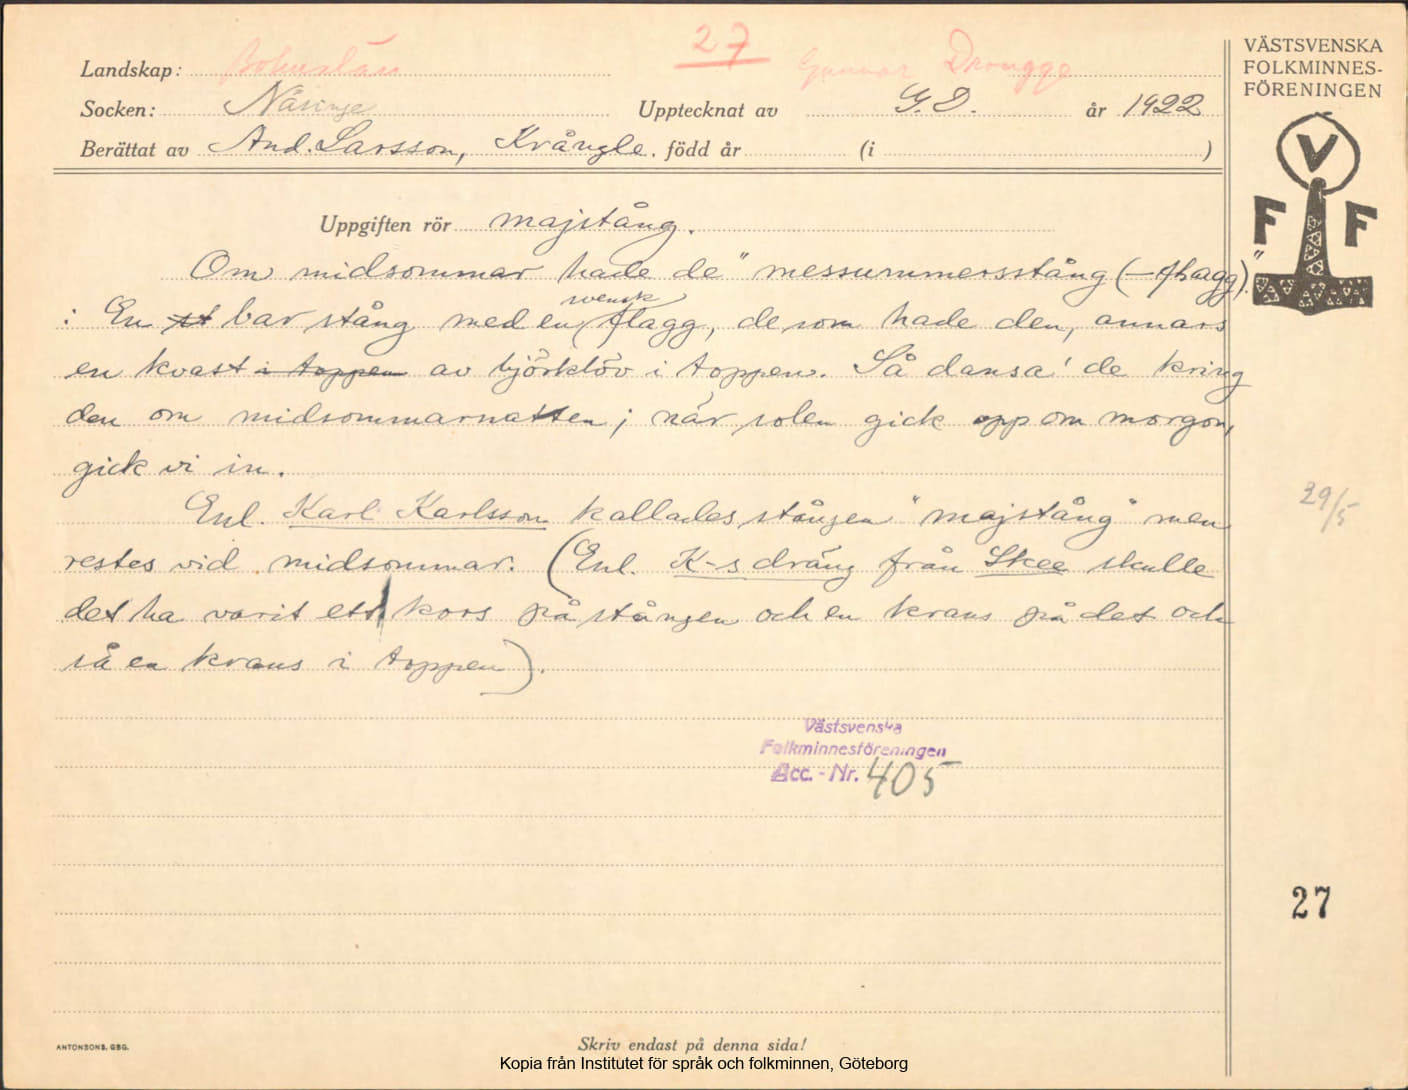 27
Landskap: Bohuslän Gunnar Drougge
Socken: Näsinge Upptecknat av G.D. år 1922
Berättat av And. Larsson, Krångle. född år (i )
VÄSTSVENSKA
FOLKMINNES-
FÖRENINGEN
V
F F
Uppgiften rör majstång.
Om midsommar hade de "messummersstång (–flagg)."
: En st bar stång med en svensk flagg, de som hade den, annars
en kvast i toppen av björklöv i toppen. Så dansa' de kring
den om midsommarnatten; när solen gick opp om morgon,
gick vi in.
Enl. Karl Karlsson kallades stången "majstång" men
restes vid midsommar. (Enl. K-s dräng från Skee skulle
det ha varit ett kors på stången och en krans på det och
så en krans i toppen).
29/5
Västsvenska
Folkminnesföreningen
Acc. - Nr. 405
27
ANTONSONS, GBG.
Skriv endast på denna sida!
Kopia från Institutet för språk och folkminnen, Göteborg